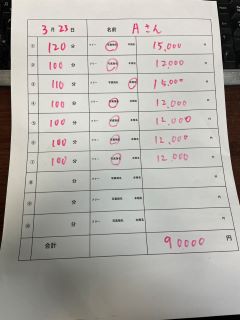 3月23日 名前 Aさん
① 120分 フリー 写真指名 本指名 15,000円
② 100分 フリー 写真指名 本指名 12000円
③ 110分 フリー 写真指名 本指名 15,000円
④ 100分 フリー 写真指名 本指名 12,000円
⑤ 100分 フリー 写真指名 本指名 12,000円
⑥ 100分 フリー 写真指名 本指名 12,000円
⑦ 100分 フリー 写真指名 本指名 12,000円
⑧ 分 フリー 写真指名 本指名 円
⑨ 分 フリー 写真指名 本指名 円
⑩ 分 フリー 写真指名 本指名 円
合計 90000円